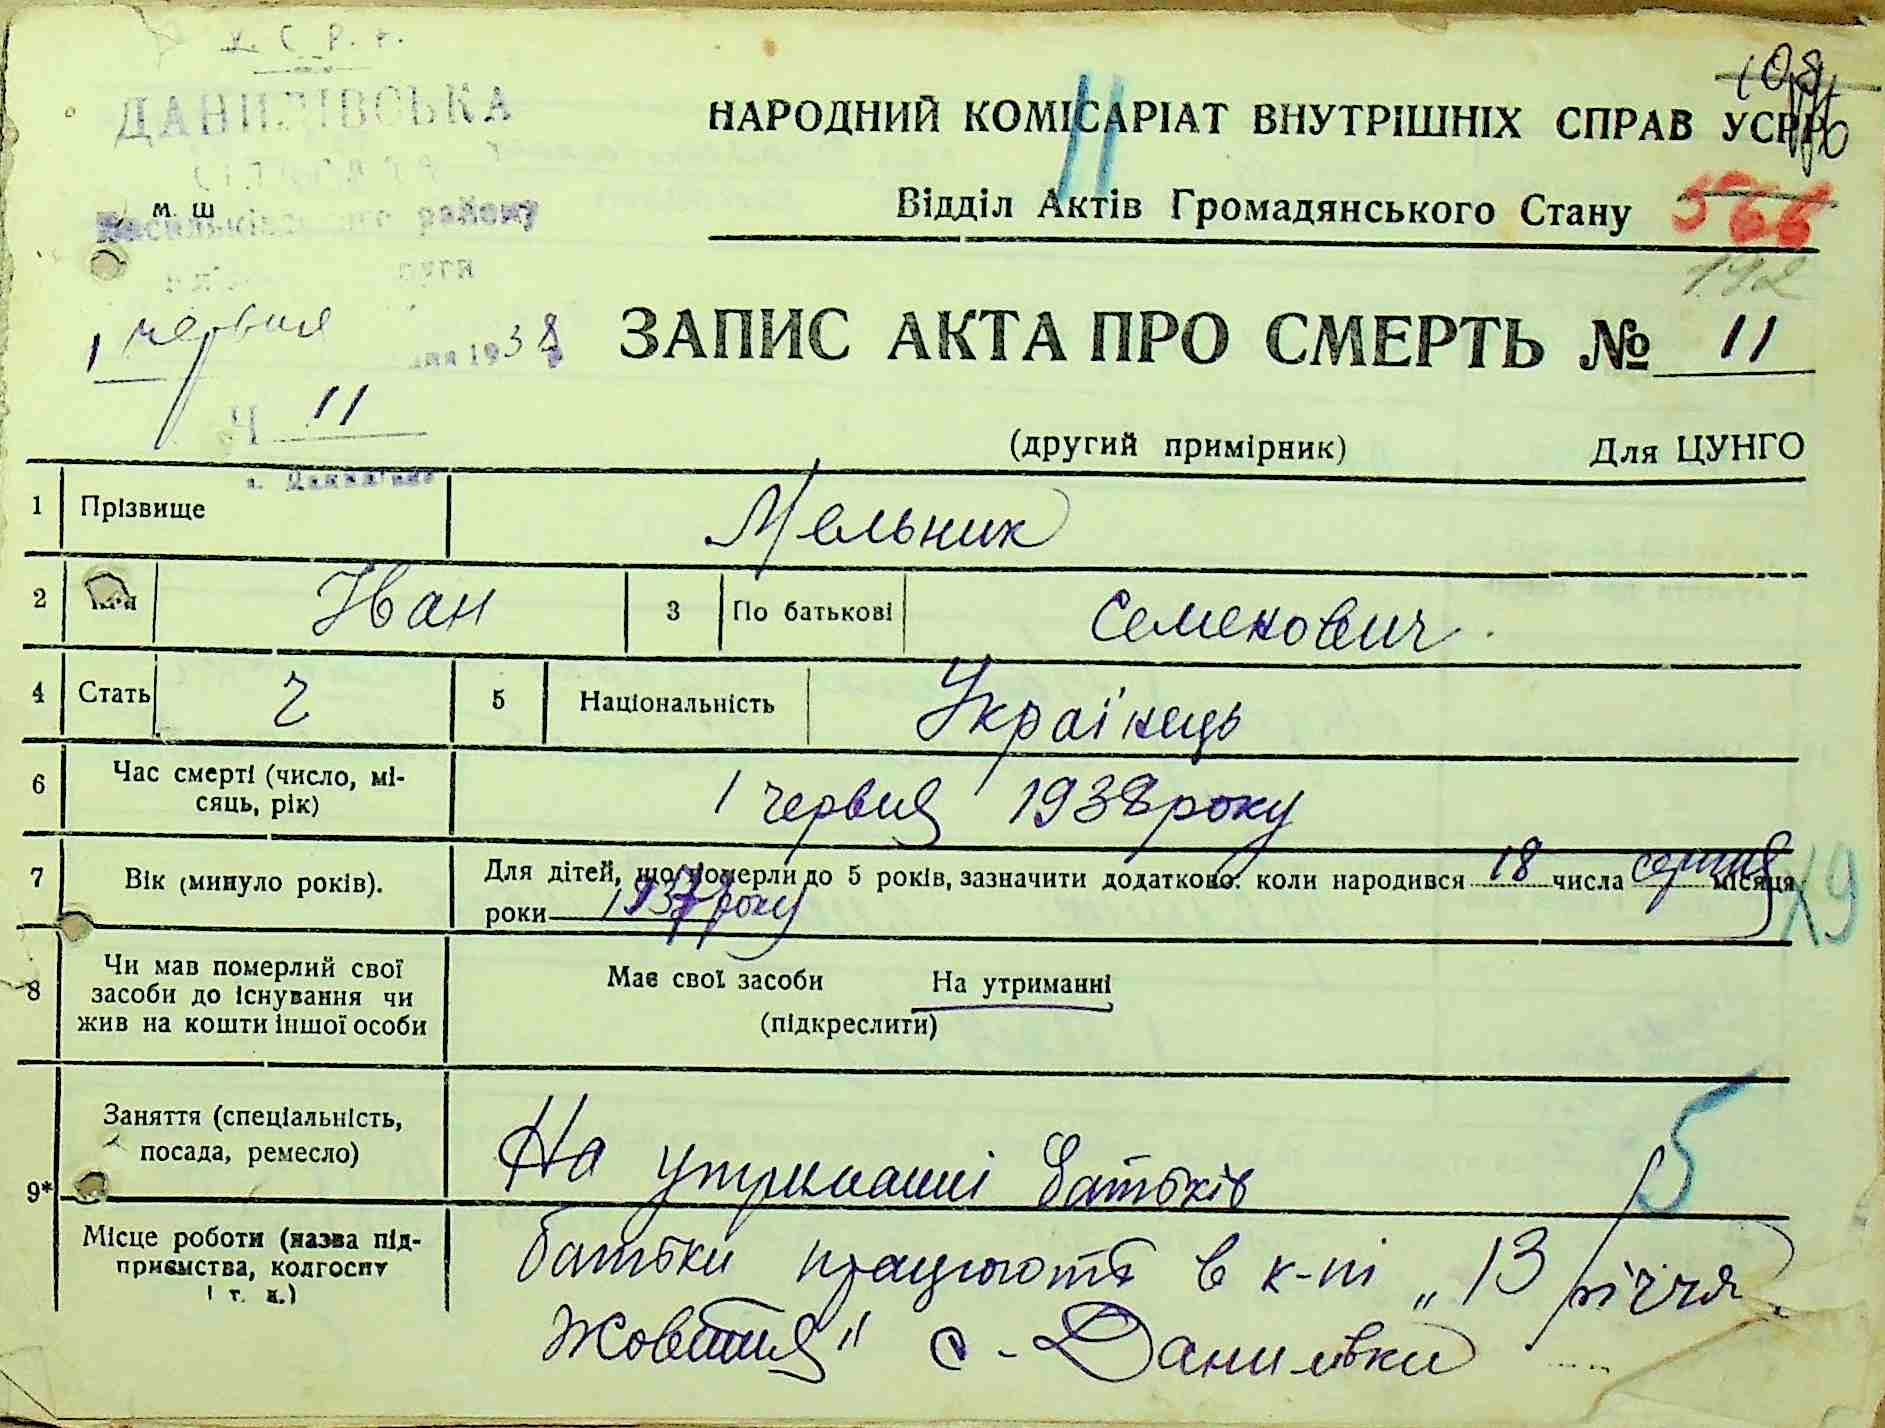 У.С.Р.Р.
ДАНИЛІВСЬКА
СІЛЬРАДА
Васильківського району
НАРОДНИЙ КОМІСАРІАТ ВНУТРІШНІХ СПРАВ УСРР
11
Відділ Актів Громадянського Стану
566
м. ш
192
1 червня 1938
ЗАПИС АКТА ПРО СМЕРТЬ № 11
Ч 11
(другий примірник) Для ЦУНГО
1 Прізвище Мельник
2 Ім'я Іван 3 По батькові Семенович
4 Стать ч 5 Національність Українець
6 Час смерті (число, мі-
сяць, рік) 1 червня 1938 року
7 Вік (минуло років). Для дітей, що померли до 5 років, зазначити додатково: коли народився 18 числа серпня місяця
роки 1937 року
Х9
8 Чи мав померлий свої
засоби до існування чи
жив на кошти іншої особи
Має свої засоби На утриманні
(підкреслити)
9* Заняття (спеціальність,
посада, ремесло) На утриманні батьків
5
Місце роботи (назва під-
приємства, колгоспу
і т. и.)
батьки працюють в к-пі „13 річчя
Жовтня" с. Данилівки